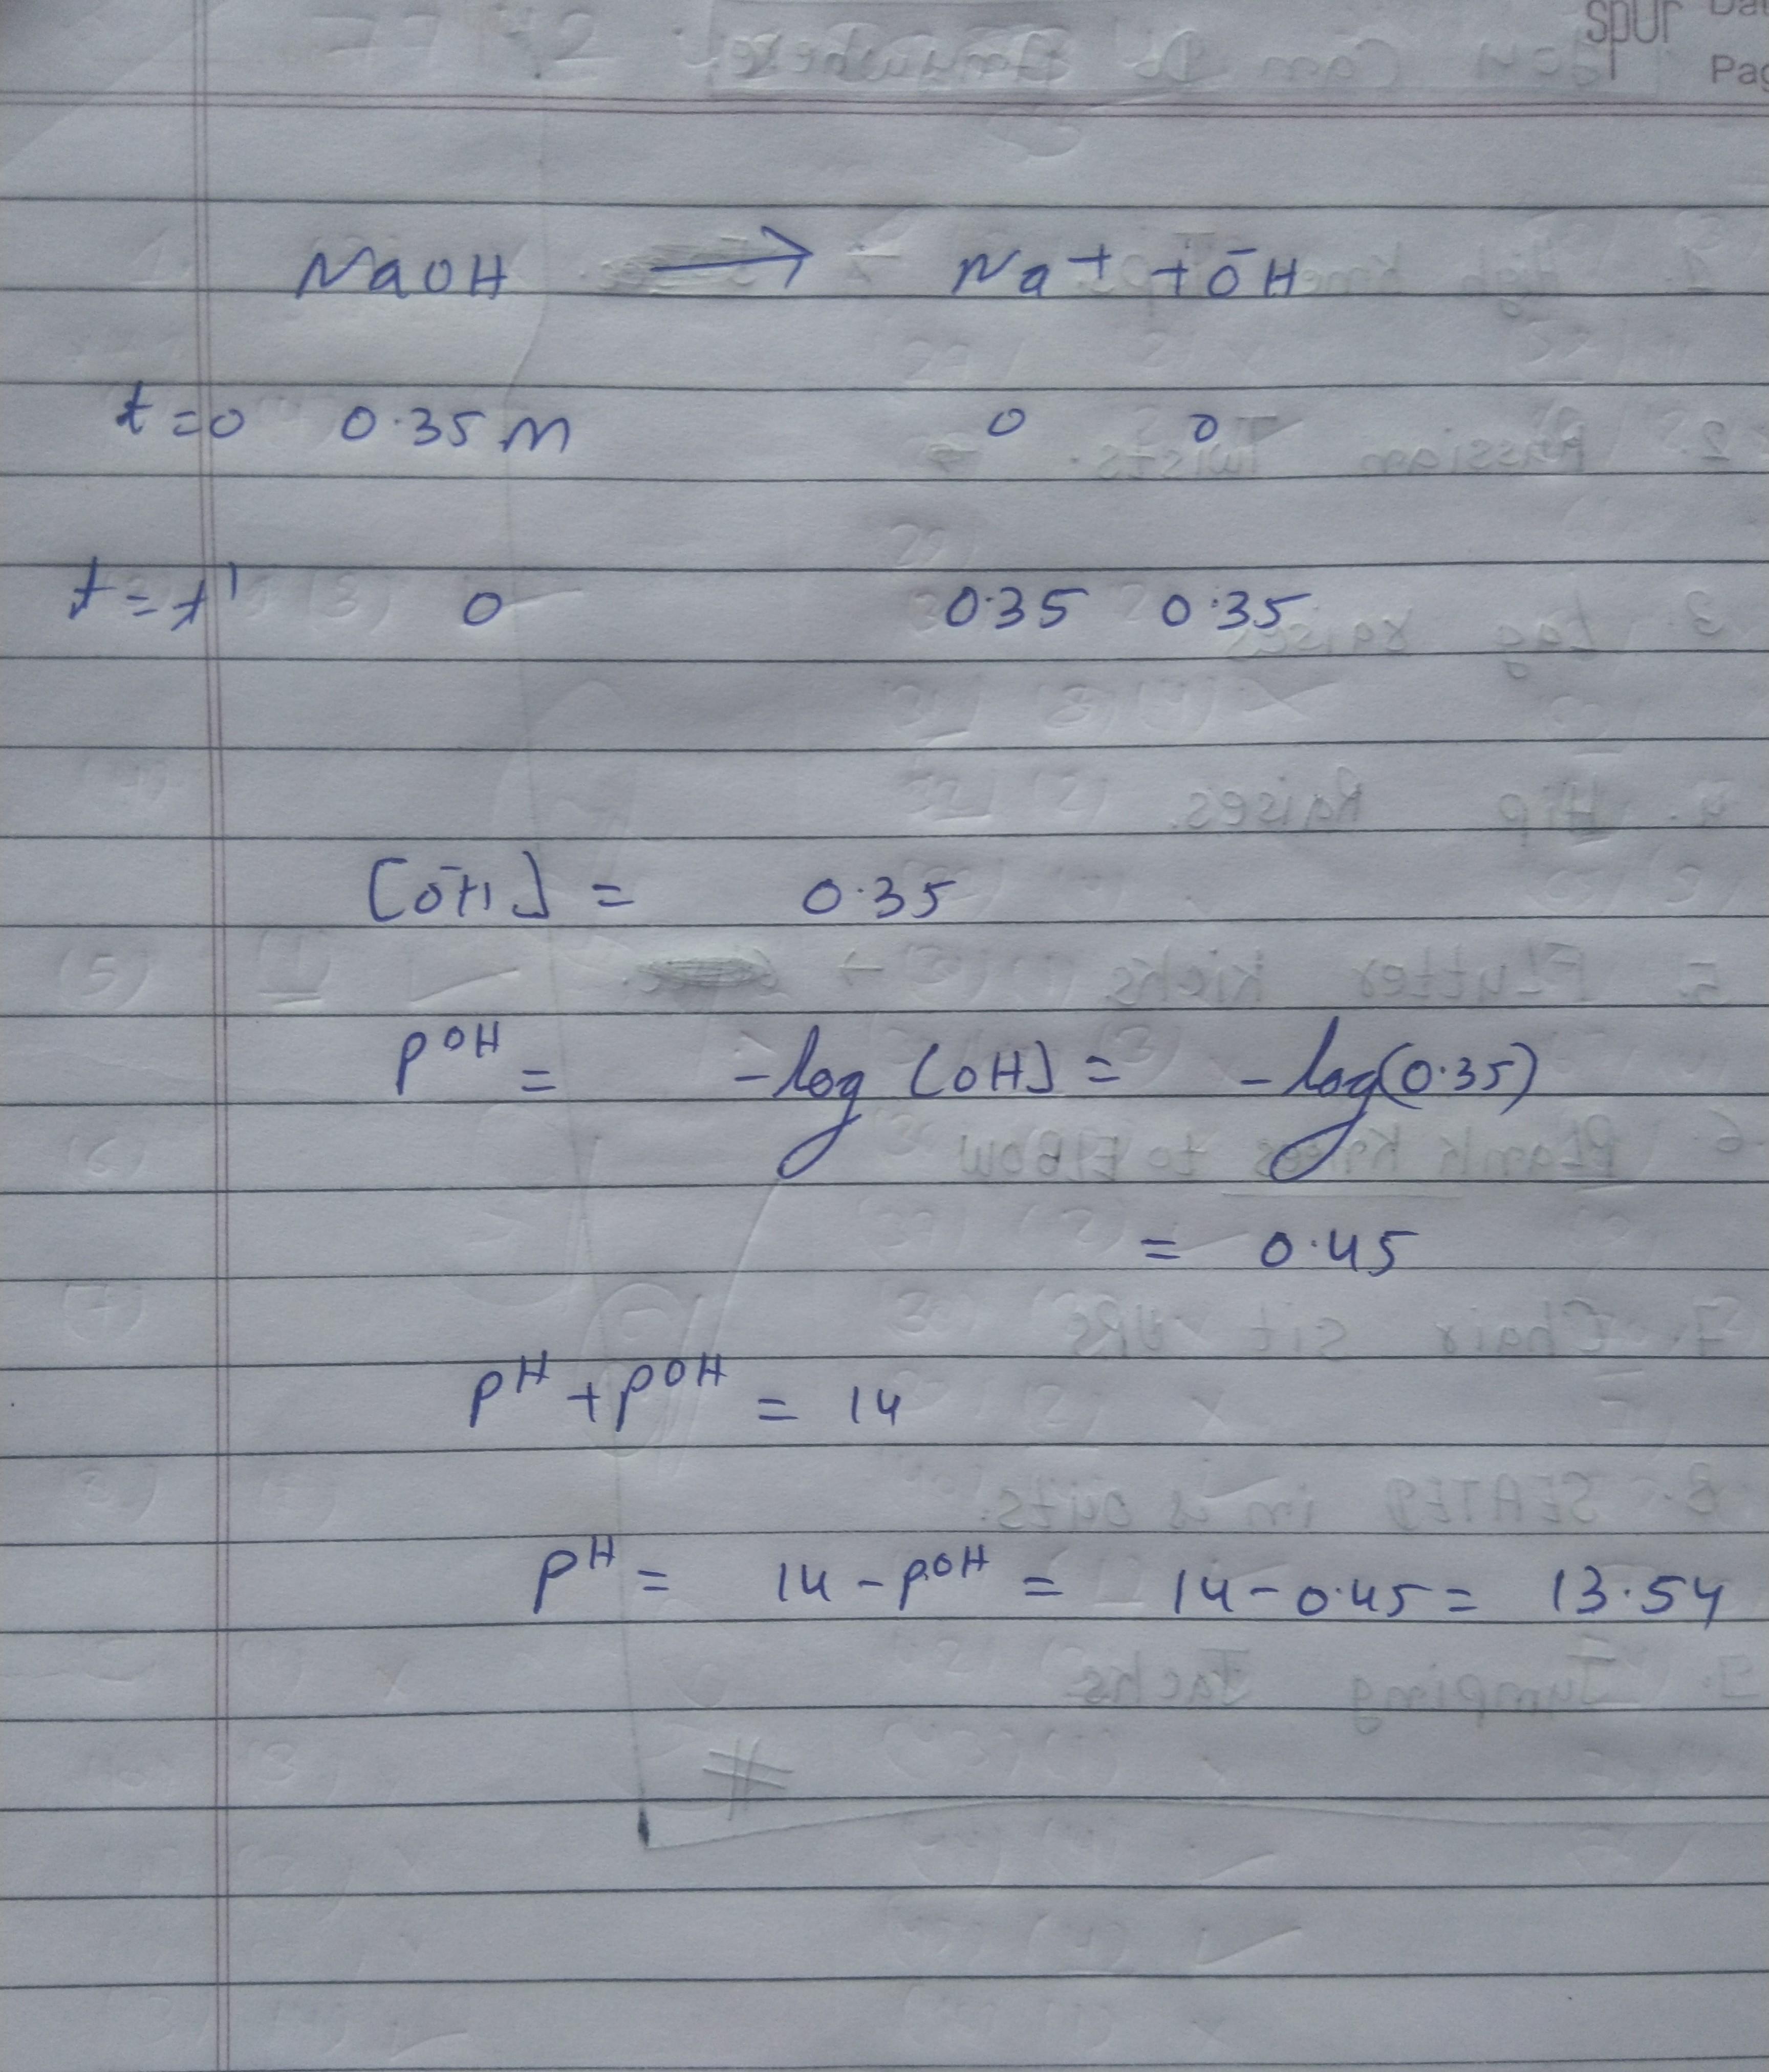 spur
Pag
NaOH → Na⁺ + ŌH
t=0 0.35 m 0 0
t=t' 0 0.35 0.35
[ŌH] = 0.35
pᴼᴴ = -log [OH] = -log(0.35)
= 0.45
pᴴ + pᴼᴴ = 14
pᴴ = 14 - pᴼᴴ = 14 - 0.45 = 13.54